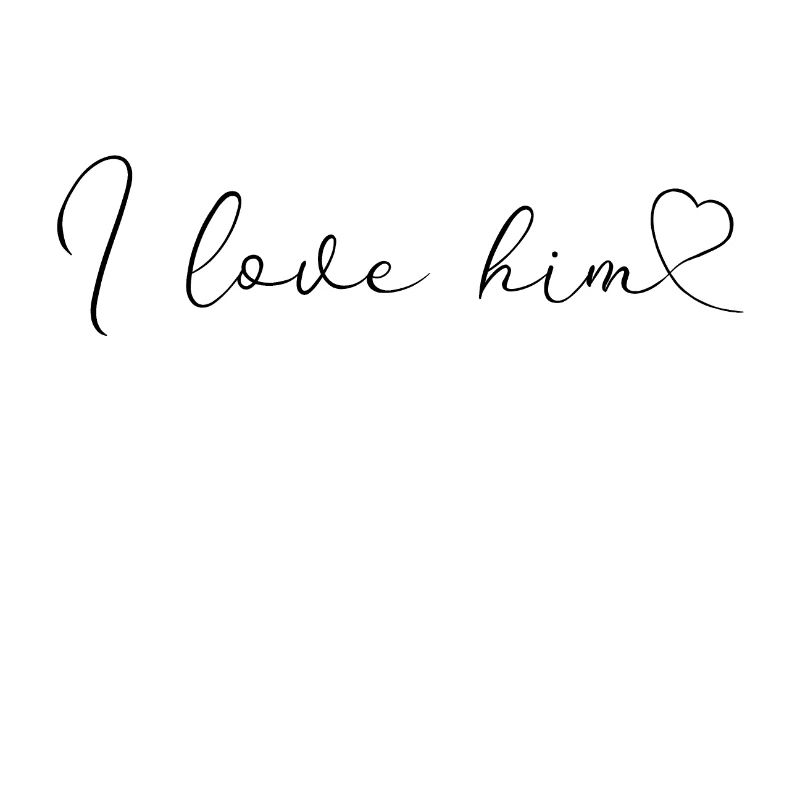 I love him